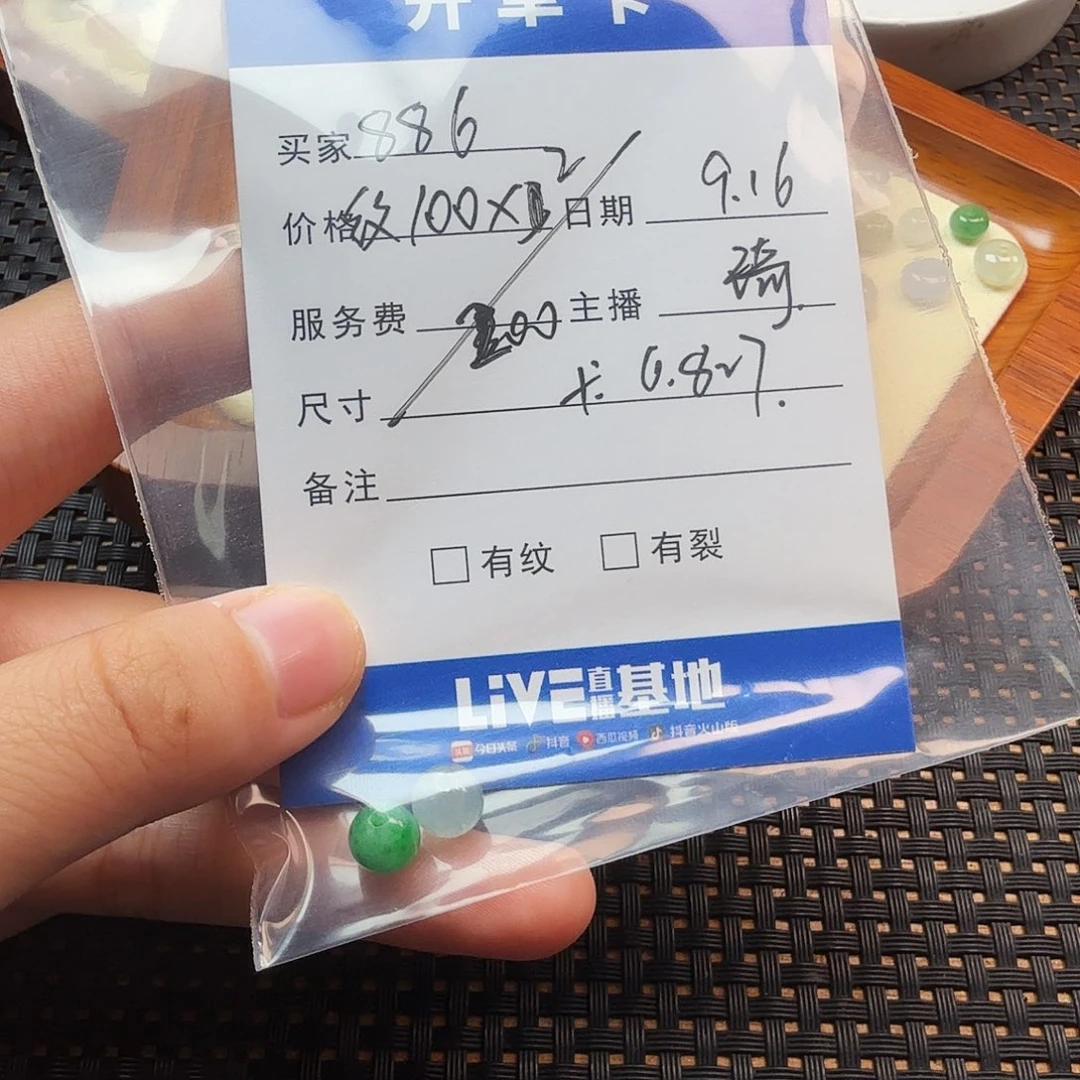 开单卡
买家 886
价格 100×2 日期 9.16
服务费 200 主播 琦
尺寸 卡 0.827.
备注
□有纹 □有裂
LiVE直播基地
头条 今日头条 抖音 西瓜视频 抖音火山版